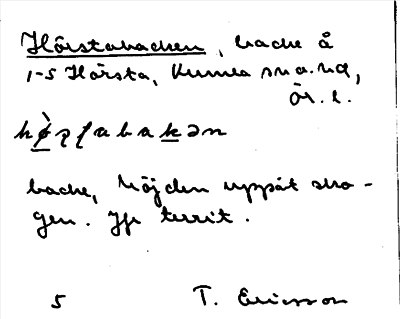 Hörstabacken, backe å
1-5 Hörsta, Kumla sn o. hd,
Ör. l.
backe, höjden uppåt sko-
gen. Jfr territ.
5 T. Ericsson